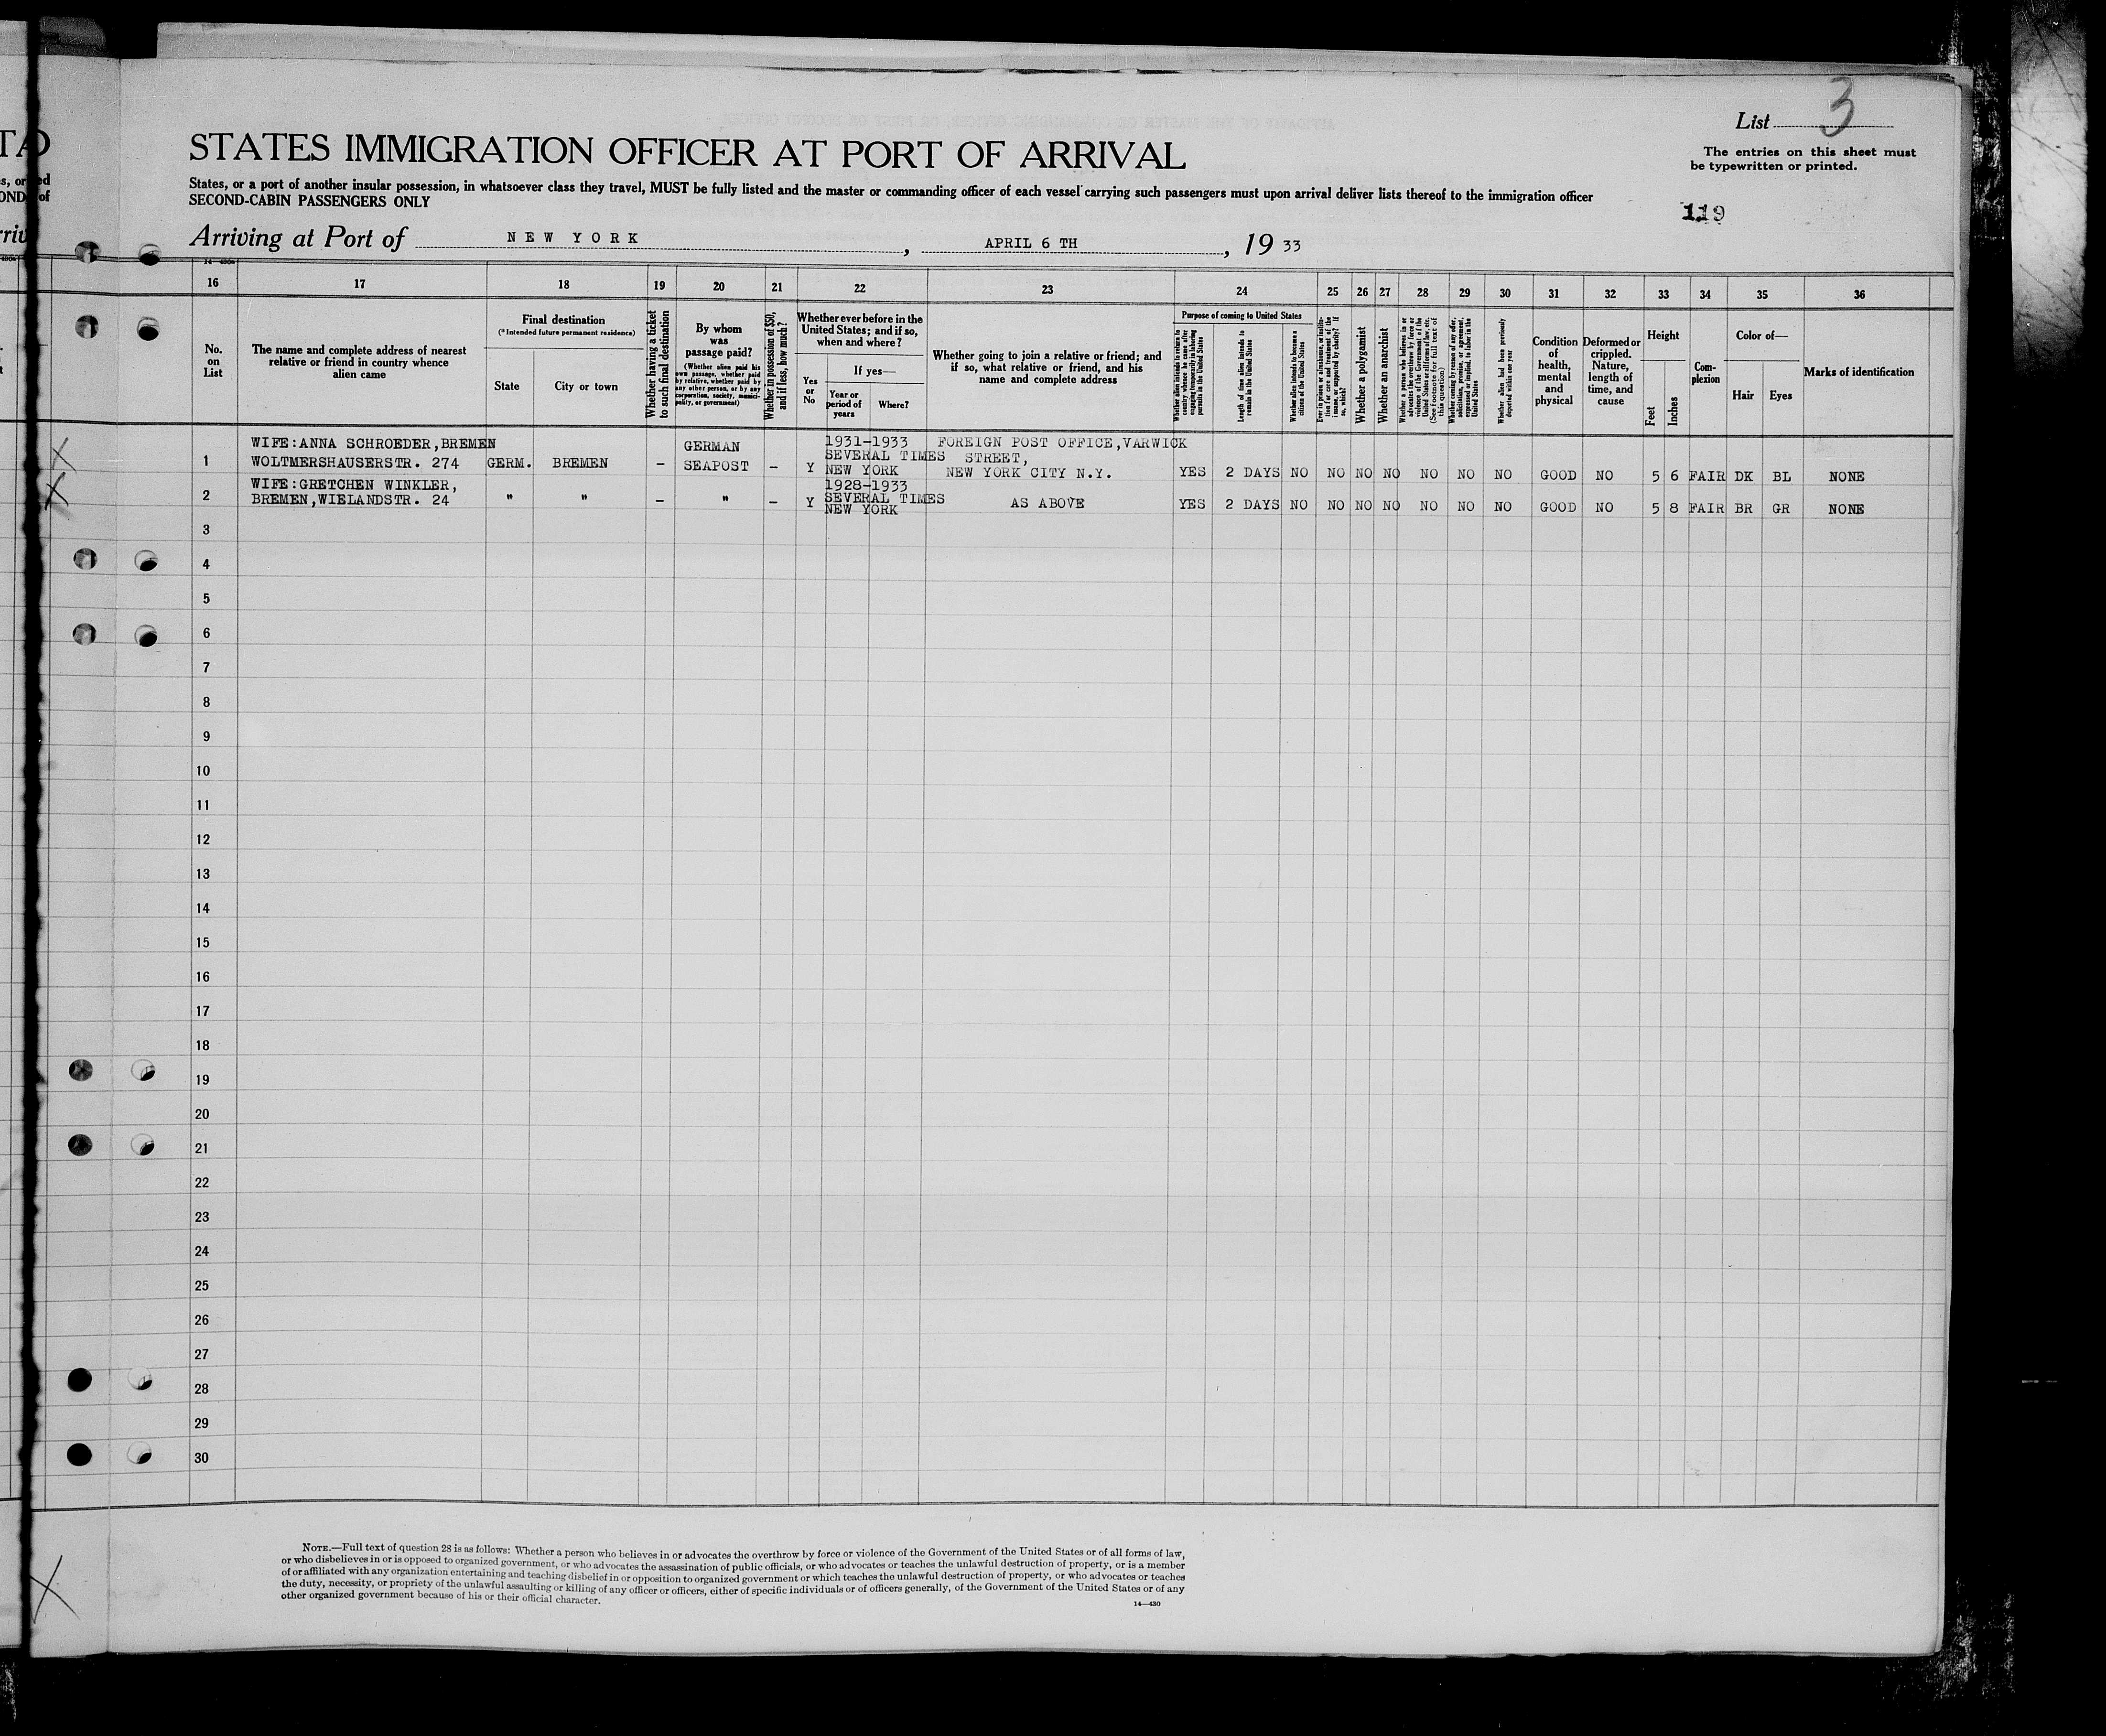 TA
s, or ed
OND of
rriv
List 3
The entries on this sheet must
be typewritten or printed.
STATES IMMIGRATION OFFICER AT PORT OF ARRIVAL
States, or a port of another insular possession, in whatsoever class they travel, MUST be fully listed and the master or commanding officer of each vessel carrying such passengers must upon arrival deliver lists thereof to the immigration officer
SECOND-CABIN PASSENGERS ONLY
119
Arriving at Port of NEW YORK, APRIL 6 TH, 19 33
16 17 18 19 20 21 22 23 24 25 26 27 28 29 30 31 32 33 34 35 36
No.
on
List
The name and complete address of nearest
relative or friend in country whence
alien came
Final destination
(*Intended future permanent residence)
State
City or town
Whether having a ticket
to such final destination
By whom
was
passage paid?
(Whether alien paid his
own passage, whether paid
by relative, whether paid by
any other person, or by any
corporation, society, munici-
pality, or government)
Whether in possession of $50,
and if less, how much?
Whether ever before in the
United States; and if so,
when and where?
Yes
or
No
If yes—
Year or
period of
years
Where?
Whether going to join a relative or friend; and
if so, what relative or friend, and his
name and complete address
Purpose of coming to United States
Whether alien intends to return to
country whence he came after
engaging temporarily in laboring
pursuits in the United States
Length of time alien intends to
remain in the United States
Whether alien intends to become a
citizen of the United States
Ever in prison or almshouse, or institu-
tion for care and treatment of the
insane, or supported by charity? If
so, which?
Whether a polygamist
Whether an anarchist
Whether a person who believes in or
advocates the overthrow by force or
violence of the Government of the
United States or all forms of law, etc.
(See footnote for full text of
this question)
Whether coming by reason of any offer,
solicitation, promise, or agreement,
expressed or implied, to labor in the
United States
Whether alien had been previously
deported within one year
Condition
of
health,
mental
and
physical
Deformed or
crippled.
Nature,
length of
time, and
cause
Height
Feet
Inches
Com-
plexion
Color of—
Hair
Eyes
Marks of identification
WIFE:ANNA SCHROEDER,BREMEN GERMAN 1931-1933 FOREIGN POST OFFICE,VARWICK
SEVERAL TIMES STREET,
1 WOLTMERSHAUSERSTR. 274 GERM. BREMEN – SEAPOST – Y NEW YORK NEW YORK CITY N.Y. YES 2 DAYS NO NO NO NO NO NO NO GOOD NO 5 6 FAIR DK BL NONE
WIFE:GRETCHEN WINKLER, 1928-1933
2 BREMEN,WIELANDSTR. 24 " " – " – Y SEVERAL TIMES AS ABOVE YES 2 DAYS NO NO NO NO NO NO NO GOOD NO 5 8 FAIR BR GR NONE
NEW YORK
3
4
5
6
7
8
9
10
11
12
13
14
15
16
17
18
19
20
21
22
23
24
25
26
27
28
29
30
NOTE.—Full text of question 28 is as follows: Whether a person who believes in or advocates the overthrow by force or violence of the Government of the United States or of all forms of law,
or who disbelieves in or is opposed to organized government, or who advocates the assassination of public officials, or who advocates or teaches the unlawful destruction of property, or is a member
of or affiliated with any organization entertaining and teaching disbelief in or opposition to organized government or which teaches the unlawful destruction of property, or who advocates or teaches
the duty, necessity, or propriety of the unlawful assaulting or killing of any officer or officers, either of specific individuals or of officers generally, of the Government of the United States or of any
other organized government because of his or their official character.
14—430